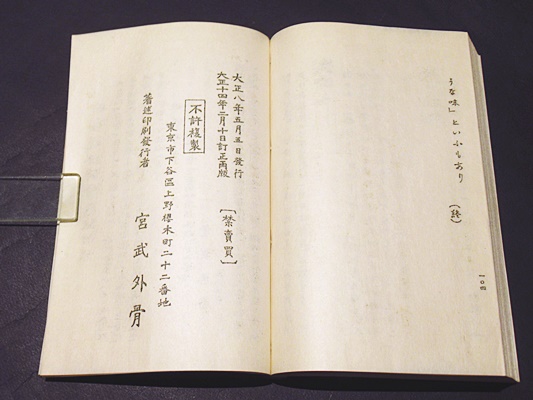 うな味」といふもあり
(終)
一〇四
大正八年五月五日發行
大正十四年二月十日訂正再版
〔禁賣買〕
不許複製
東京市下谷區上野櫻木町二十二番地
著述印刷發行者
宮武外骨